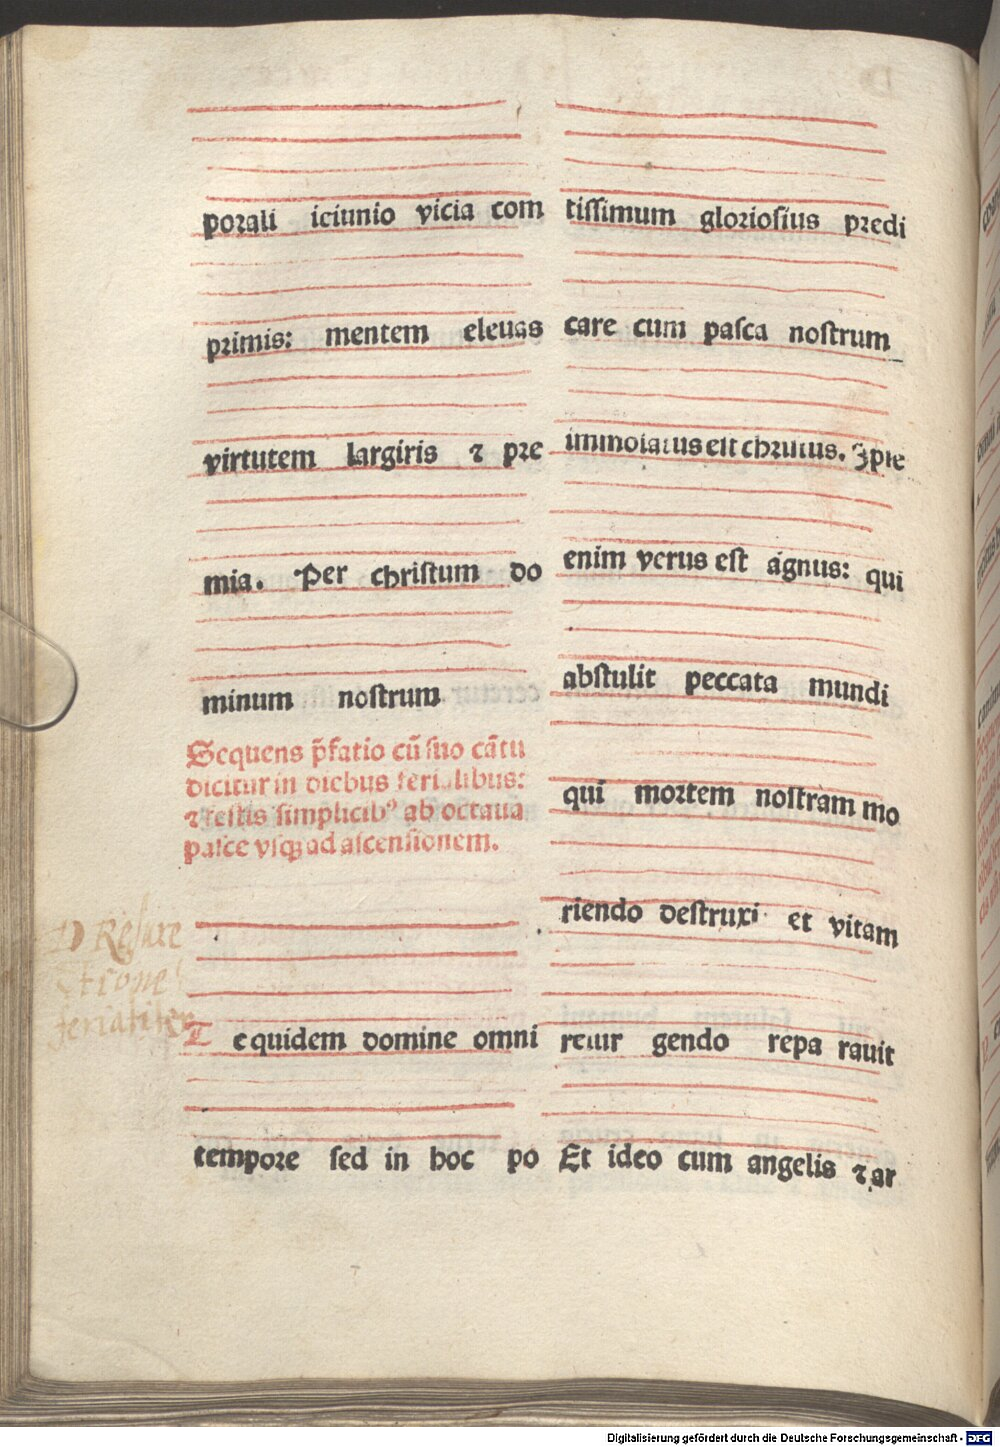 porali iciunio vicia com
primis: mentem eleuas
virtutem largiris ⁊ pre
mia. Per christum do
minum nostrum
Sequens p̄fatio cū suo cātu
dicitur in diebus ferialibus:
⁊ festis simplicibꝰ ab octaua
pasce vsqꝫ ad ascensionem.
D Resure
ctione
feriatiter
Te quidem domine omni
tempore sed in hoc po
tissimum gloriosius predi
care cum pasca nostrum
immolatus est christus. Ipse
enim verus est agnus: qui
abstulit peccata mundi
qui mortem nostram mo
riendo destruxi et vitam
resur gendo repa rauit
Et ideo cum angelis ⁊ ar
Digitalisierung gefördert durch die Deutsche Forschungsgemeinschaft - DFG